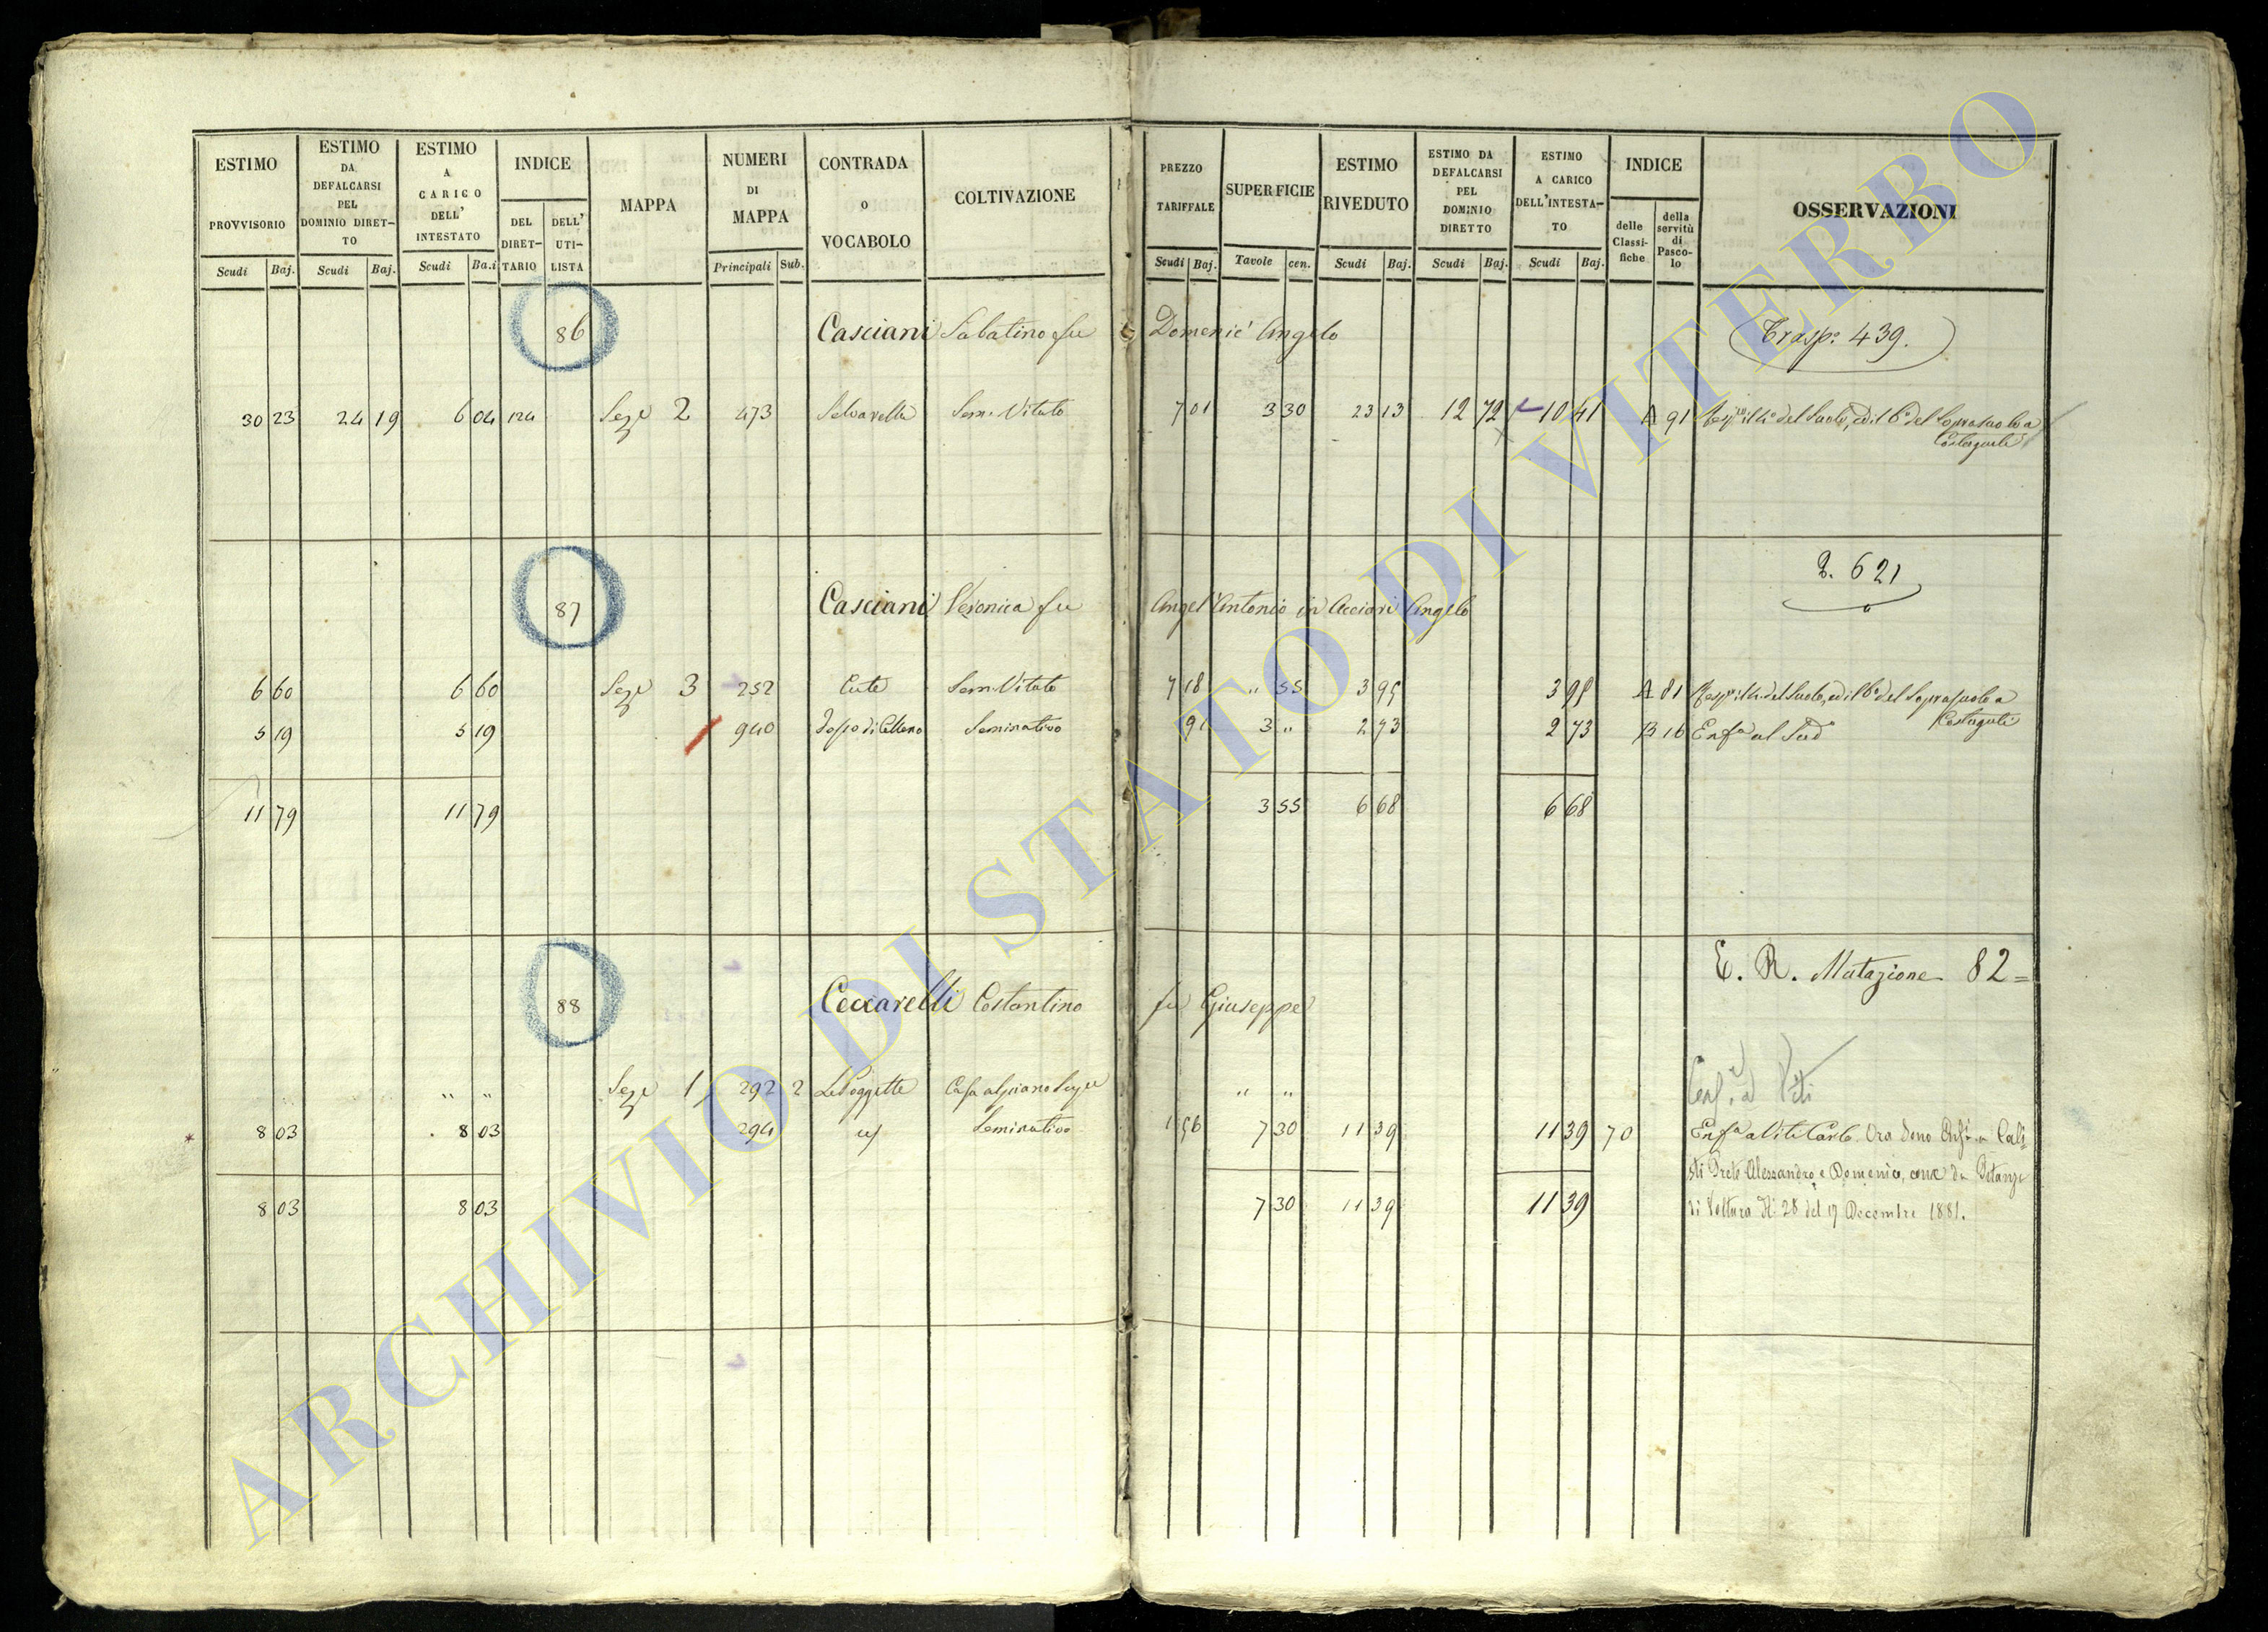 ESTIMO PROVVISORIO
Scudi Baj.
ESTIMO DA DEFALCARSI PEL DOMINIO DIRETTO
Scudi Baj.
ESTIMO A CARICO DELL' INTESTATO
Scudi Ba.i
INDICE
DEL DIRET-TARIO
DELL' UTI-LISTA
MAPPA
NUMERI DI MAPPA
Principali Sub.
CONTRADA o VOCABOLO
COLTIVAZIONE
PREZZO TARIFFALE
Scudi Baj.
SUPERFICIE
Tavole cen.
ESTIMO RIVEDUTO
Scudi Baj.
ESTIMO DA DEFALCARSI PEL DOMINIO DIRETTO
Scudi Baj.
ESTIMO A CARICO DELL'INTESTA-TO
Scudi Baj.
INDICE
delle Classi-fiche
della servitù di Pasco-lo
OSSERVAZIONI
86 Casciani Sabatino fu Domenic' Angelo
Trasp: 439.
30 23 24 19 6 04 124 Seze 2 473 Selvarella Sem. Vitato 7 01 3 30 23 13 12 72 10 41 A 91 del Suolo, ed il 6° del Soprasuolo a
Costaguti
87 Casciani Veronica fu Angel'Antonio in Acciari Angelo
R. 621
6 60 6 60 Seze 3 252 Cute Sem. Vitato 7 18 " 55 3 95 3 95 A 81 del Suolo, ed il 6° del Soprasuolo a
Costaguti
5 19 5 19 940 Fosso di Celleno Seminativo 91 3 " 2 73 2 73 B 16 Enfa al
11 79 11 79 3 55 6 68 6 68
88 Ceccarelli Costantino fu Giuseppe
E. R. Mutazione 82=
" " Seze 1 292 2 Le Poggette Casa al piano " "
Enf.a a Viti
8 03 8 03 294 id Seminativo 1 56 7 30 11 39 11 39 70 Enfa a Viti Carlo. Ora Cali-
sti Prete Alessandro e Domenico, come da
di Voltura N: 28 del 17 Decembre 1881.
8 03 8 03 7 30 11 39 11 39
ARCHIVIO DI STATO DI VITERBO